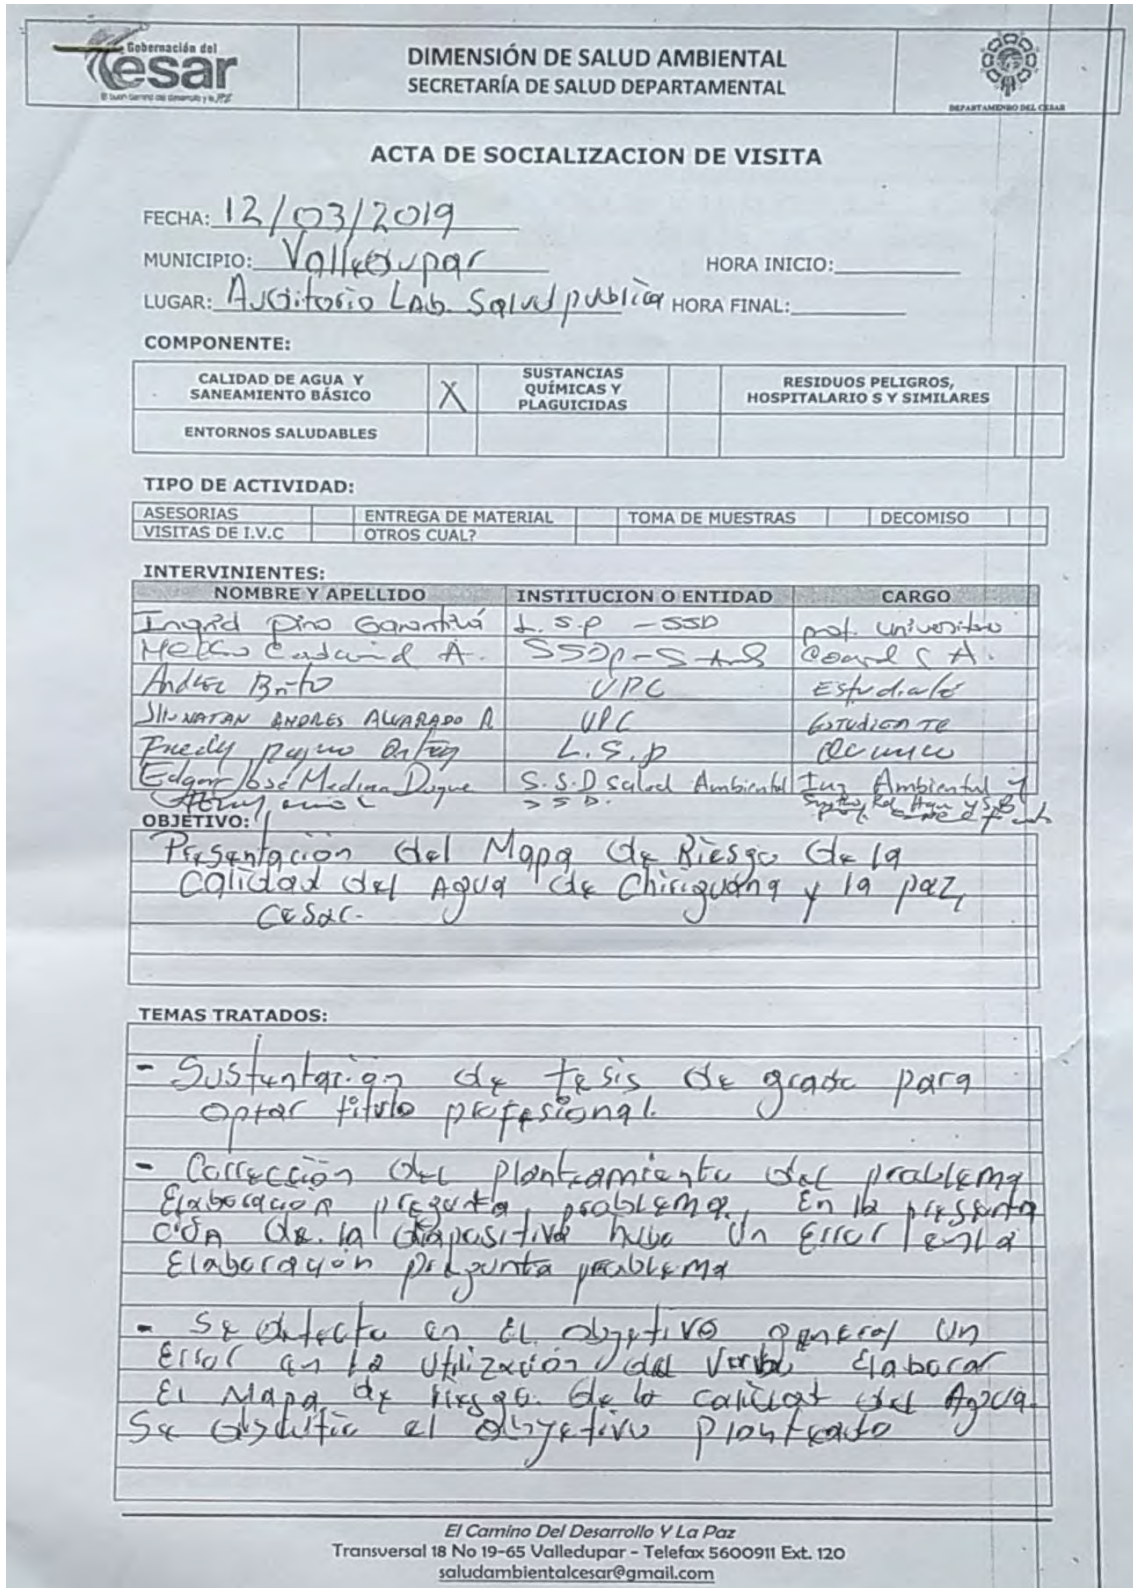 Gobernación del
Cesar
DIMENSIÓN DE SALUD AMBIENTAL
SECRETARÍA DE SALUD DEPARTAMENTAL
DEPARTAMENTO DEL CESAR
ACTA DE SOCIALIZACION DE VISITA
FECHA: 12/03/2019
MUNICIPIO: Valledupar HORA INICIO:
LUGAR: Auditorio LAB. Salud publica HORA FINAL:
COMPONENTE:
CALIDAD DE AGUA Y SANEAMIENTO BÁSICO X SUSTANCIAS QUÍMICAS Y PLAGUICIDAS RESIDUOS PELIGROS, HOSPITALARIO S Y SIMILARES
ENTORNOS SALUDABLES
TIPO DE ACTIVIDAD:
ASESORIAS ENTREGA DE MATERIAL TOMA DE MUESTRAS DECOMISO
VISITAS DE I.V.C OTROS CUAL?
INTERVINIENTES:
NOMBRE Y APELLIDO INSTITUCION O ENTIDAD CARGO
Ingrid Pino L.S.P - SSD prof. universitario
A.
Brito UPC Estudiante
ANDRES ALVARADO R UPC Estudiante
L.S.P
Edgar José Medina Duque S.S.D Salud Ambiental Ing Ambiental y
OBJETIVO:
Presentación del Mapa de Riesgo de la
Calidad del Agua de Chiriguana y la paz,
Cesar.
TEMAS TRATADOS:
- Sustentación de tesis de grado para
optar titulo profesional.
- Corrección del planteamiento del problema
Elaboración pregunta problema, En la presenta
ción de la diapositiva hubo un Error en la
Elaboración pregunta problema
- Se detecta en El objetivo general un
Error en la utilización del Verbo Elaborar
El Mapa de riesgo de la calidad del Agua.
Se el objetivo planteado
El Camino Del Desarrollo Y La Paz
Transversal 18 No 19-65 Valledupar - Telefax 5600911 Ext. 120
saludambientalcesar@gmail.com